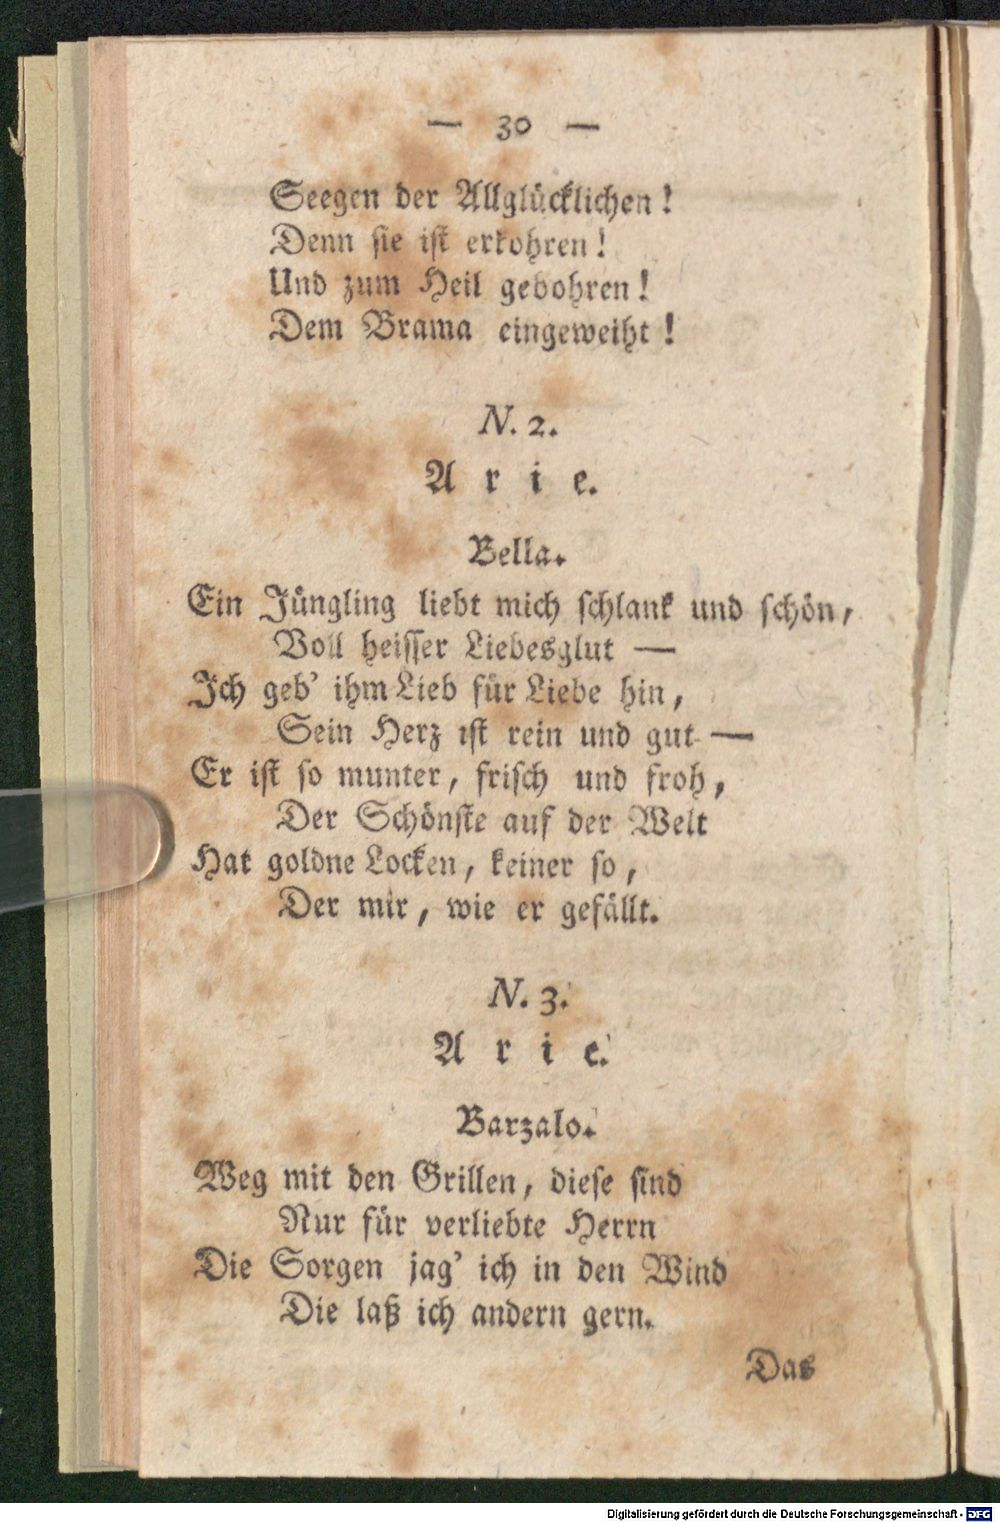 — 30 —
Seegen der Allglücklichen!
Denn sie ist erkohren!
Und zum Heil gebohren!
Dem Brama eingeweiht!
N. 2.
Arie.
Bella.
Ein Jüngling liebt mich schlank und schön,
Voll heisser Liebesglut —
Ich geb' ihm Lieb für Liebe hin,
Sein Herz ist rein und gut —
Er ist so munter, frisch und froh,
Der Schönste auf der Welt
Hat goldne Locken, keiner so,
Der mir, wie er gefällt.
N. 3.
Arie.
Barzalo.
Weg mit den Grillen, diese sind
Nur für verliebte Herrn
Die Sorgen jag' ich in den Wind
Die laß ich andern gern.
Das
Digitalisierung gefördert durch die Deutsche Forschungsgemeinschaft - DFG